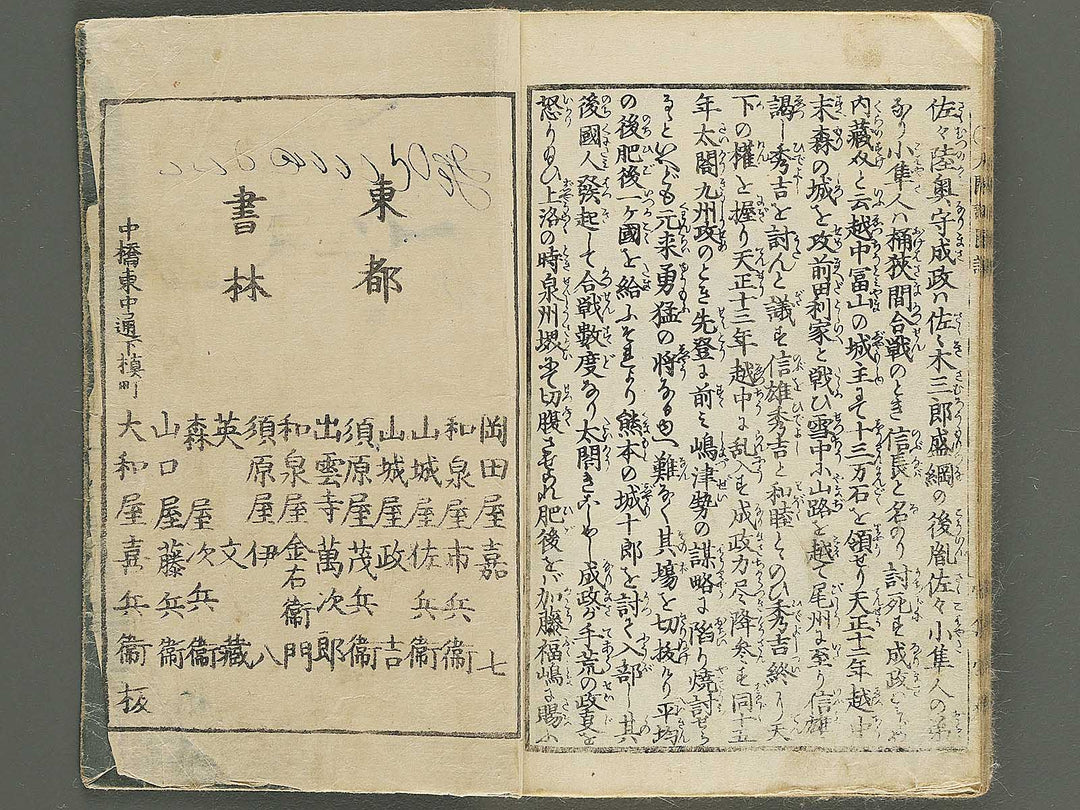 佐々陸奥守成政ハ佐々木三郎盛綱の後胤佐々小隼人の弟
なり小隼人ハ桶狭間合戦のとき信長と名のり討死す成政
内藏介と云越中冨山の城主にて十三万石を領せり天正十二年越中
末森の城を攻前田利家と戦ひ雪中に山路を越て尾州に至り信雄
謁し秀吉を討んと議す信雄秀吉と和睦とゝのひ秀吉終に天
下の權を握り天正十三年越中に乱入す成政力尽降参す同十五
年太閤九州政のとき先登に前ミ嶋津勢の謀略に陥り焼討せら
るといへども元来勇猛の将なる也難なく其場を切抜けり平均
の後肥後一ヶ國を給ふそれより熊本の城十郎を討て入部し其
後國人發起して合戦數度なり太閤きこしめし成政が手荒の政事を
怒り給ひ上洛の時泉州堺にて切腹させられ肥後をバ加藤福嶋に賜ふ
東都
書林
岡田屋嘉七
和泉屋市兵衞
山城屋佐兵衞
山城屋政吉
須原屋茂兵衞
出雲寺萬次郎
和泉屋金右衞門
須原屋伊八
英文藏
森屋次兵衞
山口屋藤兵衞
中橋東中通下槙町
大和屋喜兵衞板